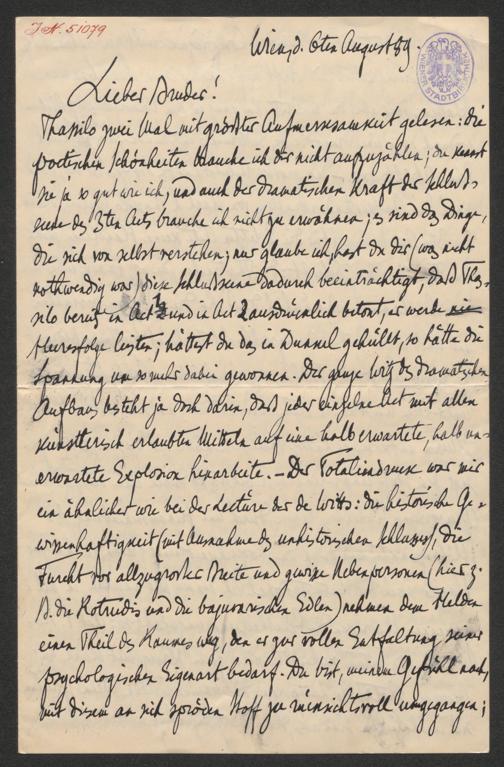 J.N. 51079
WIENER STADTBIBLIOTHEK
Wien, d. 6ten August 89.
Lieber Bruder!
Thassilo zwei Mal mit größter Aufmerksamkeit gelesen: die
poetischen Schönheiten brauche ich dir nicht aufzuzählen; du kennst
sie ja so gut wie ich, und auch der dramatischen Kraft der Schluß-
scene des 3ten Acts brauche ich nicht zu erwähnen; es sind das Dinge,
die sich von selbst verstehen; nur glaube ich, hast du dir (was nicht
nothwendig war) diese Schlußscene dadurch beeinträchtigt, daß Thas-
silo bereits in Act 1 und in Act 2 ausdrücklich betont, er werde nie
Heeresfolge leisten; hättest du das in Dunkel gehüllt, so hätte die
Spannung um so mehr dabei gewonnen. Der ganze Witz des dramatischen
Aufbaus besteht ja doch darin, daß jeder einzelne Act mit allen
künstlerisch erlaubten Mitteln auf eine halb erwartete, halb un-
erwartete Explosion hinarbeite. – Der Totaleindruck war mir
ein ähnlicher wie bei der Lectüre der de Witts: die historische Ge-
wissenhaftigkeit (mit Ausnahme des unhistorischen Schlusses), die
Furcht vor allzugroßer Breite und gewisse Nebenpersonen (hier z.
B. die Rotrudis und die bajuvarischen Edlen) nehmen dem Helden
einen Theil des Raumes weg, den er zur vollen Entfaltung seiner
psychologischen Eigenart bedarf. Du bist, meinem Gefühl nach,
mit diesem an sich spröden Stoff zu rücksichtsvoll umgegangen;